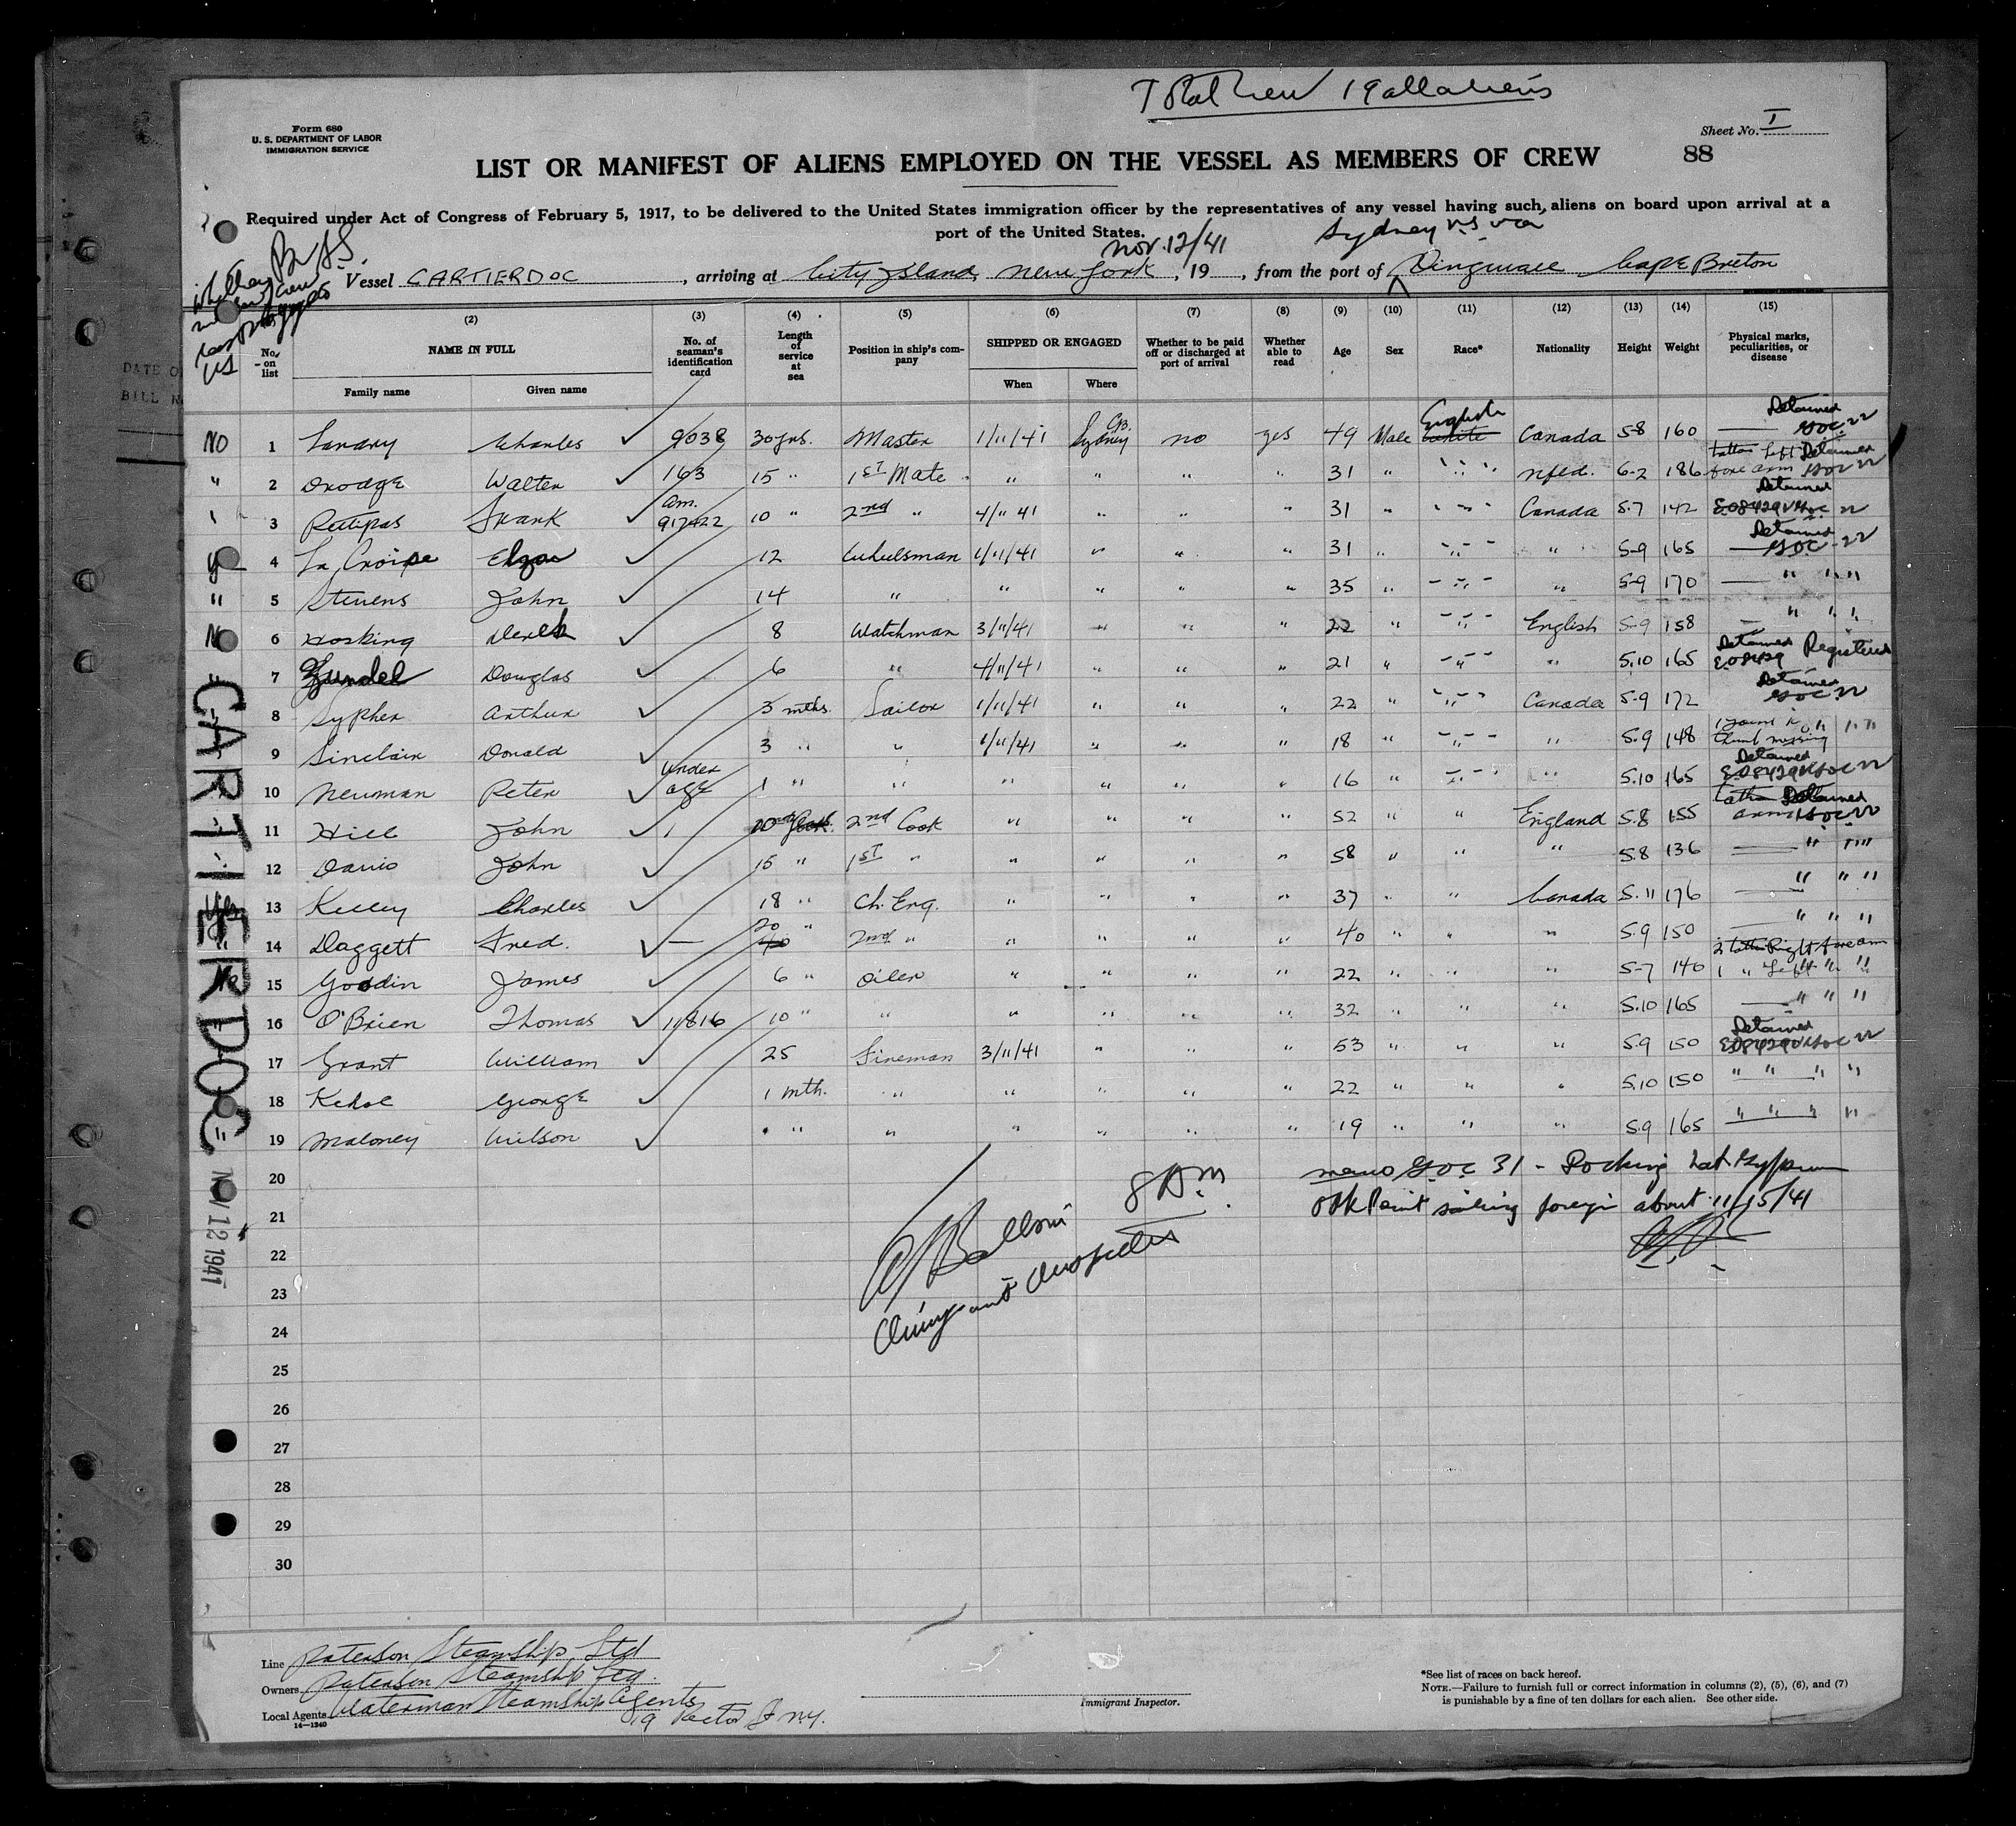 Total Crew 19 all aliens
Form 680
U. S. DEPARTMENT OF LABOR
IMMIGRATION SERVICE
Sheet No. I
LIST OR MANIFEST OF ALIENS EMPLOYED ON THE VESSEL AS MEMBERS OF CREW
88
Required under Act of Congress of February 5, 1917, to be delivered to the United States immigration officer by the representatives of any vessel having such aliens on board upon arrival at a
port of the United States.
Nov. 12/41
Sydney N.S. via
Vessel CARTIERDOC, arriving at City Island, New York, 19 , from the port of Dingwall Cape Breton
(2) (3) (4) (5) (6) (7) (8) (9) (10) (11) (12) (13) (14) (15)
No. on list
NAME IN FULL
Family name
Given name
No. of seaman's identification card
Length of service at sea
Position in ship's company
SHIPPED OR ENGAGED
When
Where
Whether to be paid off or discharged at port of arrival
Whether able to read
Age
Sex
Race*
Nationality
Height
Weight
Physical marks, peculiarities, or disease
No 1 Landry Charles 9038 30 yrs. Master 1/11/41 Sydney CB. no yes 49 Male English white Canada 5-8 160 Detained
" 2 Drodge Walter 163 15 " 1st Mate " " " " 31 " " Nfld. 6-2 186 tattoo left fore arm Detained
3 Frank am. 917422 10 " 2nd " 4/11 41 " " " 31 " " Canada 5.7 142 Detained
4 La Croixe 12 Wheelsman 1/11/41 " " " 31 " " " 5-9 165 Detained
" 5 Stevens John 14 " " " " " 35 " " " 5-9 170 " " "
No 6 Hosking Derek 8 Watchman 3/11/41 " " " 22 " " English 5-9 158 " " "
7 Douglas 6 " 4/11/41 " " " 21 " " " 5.10 165 Detained E.08429 Registered
8 Sypher Arthur 3 mths. Sailor 1/11/41 " " " 22 " " Canada 5-9 172 Detained
9 Sinclair Donald 3 " " 1/11/41 " " " 18 " " " 5.9 148 thumb missing " "
10 Neuman Peter under age 1 " " " " " " 16 " " " 5.10 165 Detained
11 Hill John 2nd Cook " " " " 52 " " England 5.8 155 Detained
12 Davis John 15 " 1st " " " " " 58 " " " 5.8 136 " "
13 Kelley Charles 18 " Ch. Eng. " " " " 37 " " Canada 5.11 176 " " "
" 14 Daggett Fred. — 20 " 2nd " " " " " 40 " " " 5.9 150 " " "
15 Goodin James 6 " Oiler " " " " 22 " " " 5-7 140 2 tattoo Right fore arm 1 " Left " "
16 O'Brien Thomas 11816 10 " " " " " " 32 " " " 5.10 165 " " "
17 Grant William 25 Fireman 3/11/41 " " " 53 " " " 5.9 150 Detained
18 Kehoe George 1 mth. " " " " " 22 " " " 5.10 150 " " " "
19 Maloney Wilson " " " " " " 19 " " " 5.9 165 " " " "
20
21
22
23
24
25
26
27
28
29
30
8 Am.
Immigrant Inspector
sailing foreign about 11/15/41
CARTIERDOC
NOV 12 1941
Line Paterson Steamship Ltd
Owners Paterson Steamship Ltd.
Local Agents Waterman Steamship Agents
19 Rector St N.Y.
14—1240
Immigrant Inspector.
*See list of races on back hereof.
NOTE.—Failure to furnish full or correct information in columns (2), (5), (6), and (7)
is punishable by a fine of ten dollars for each alien. See other side.